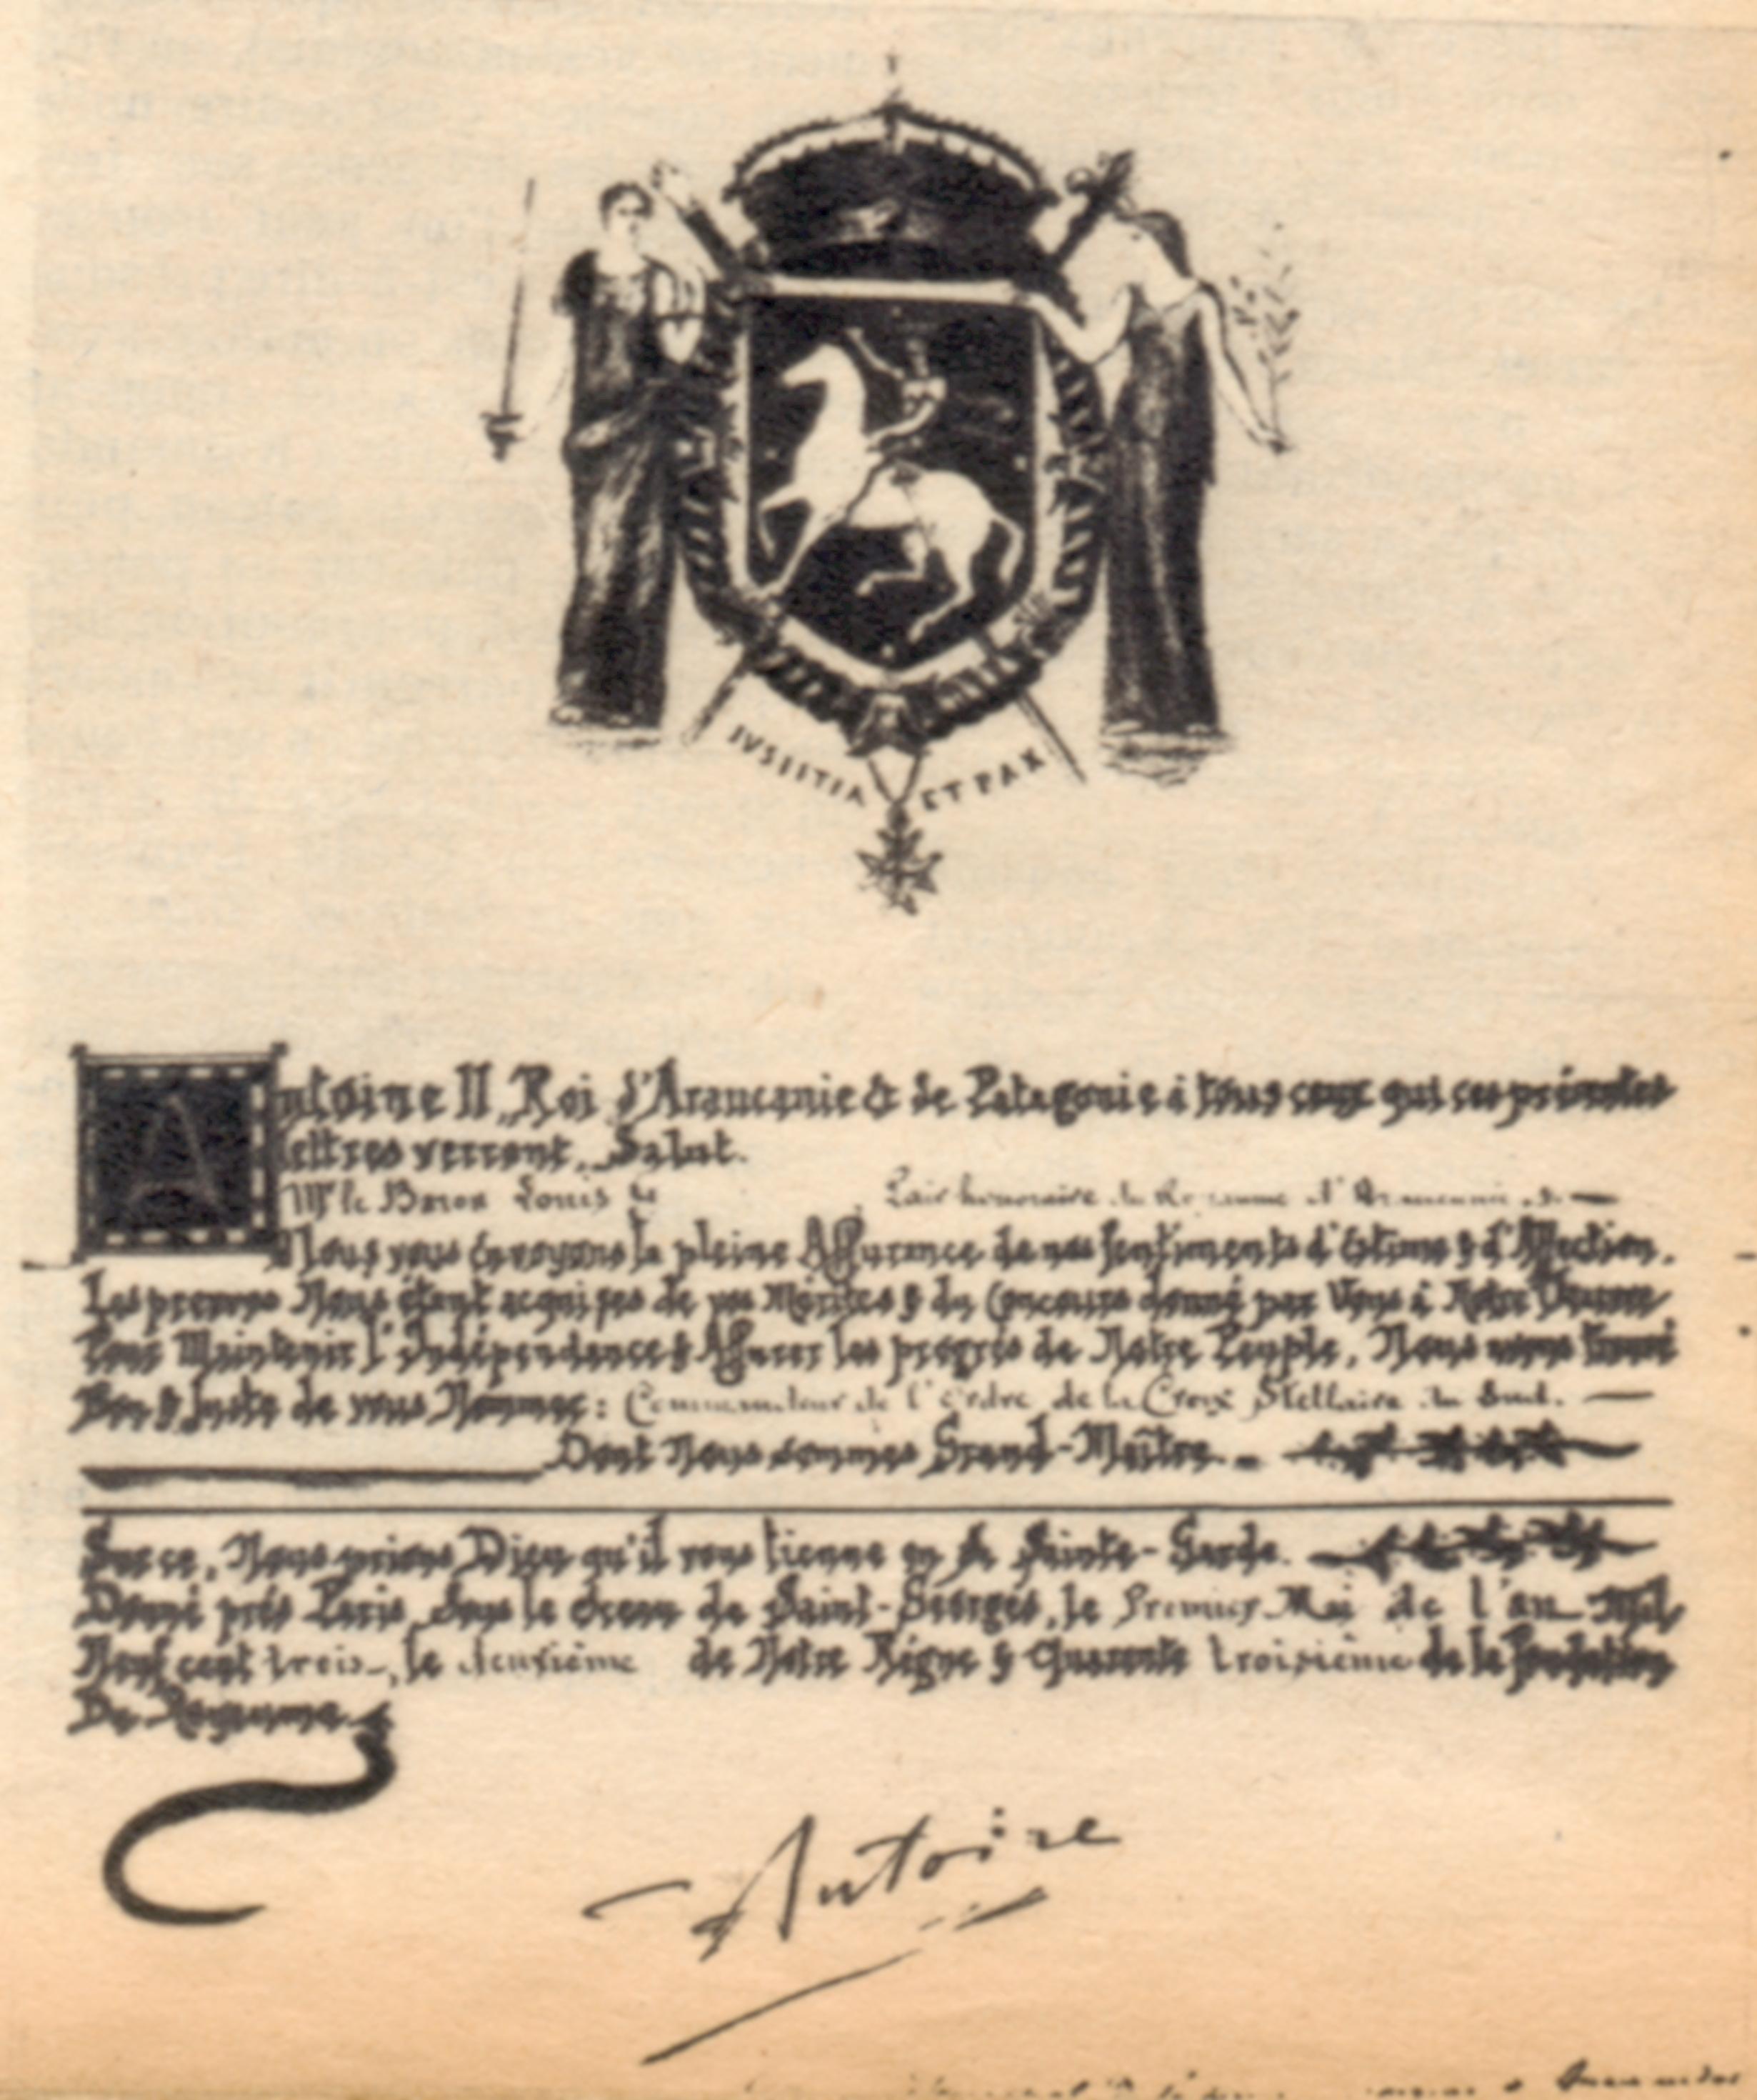 JUSTITIA ET PAX
Antoine II, Roi d'Araucanie & de Patagonie à tous ceux qui ces présentes
lettres verront, Salut.
Mr le Baron Louis Pair honoraire du Royaume d'Araucanie
Nous vous envoyons la pleine Assurance de nos Sentiments d'Estime & d'Affection.
Les preuves Nous étant acquises de vos Mérites & du Concours donné par Vous à Notre
Pour Maintenir l'Indépendance & Assurer les progrès de Notre Peuple, Nous avons trouvé
Bon & Juste de vous Nommer : Commandeur de l'Ordre de la Croix Stellaire du Sud.
Dont Nous sommes Grand-Maître.
Sur ce, Nous prions Dieu qu'il vous tienne en Sa Sainte-Garde.
Donné près Paris, sous le de Saint-Georges, le Premier Mai de l'an Mil
Neuf cent trois, le deuxième de Notre Règne & Quarante troisième de la Fondation
Du Royaume.
Antoine